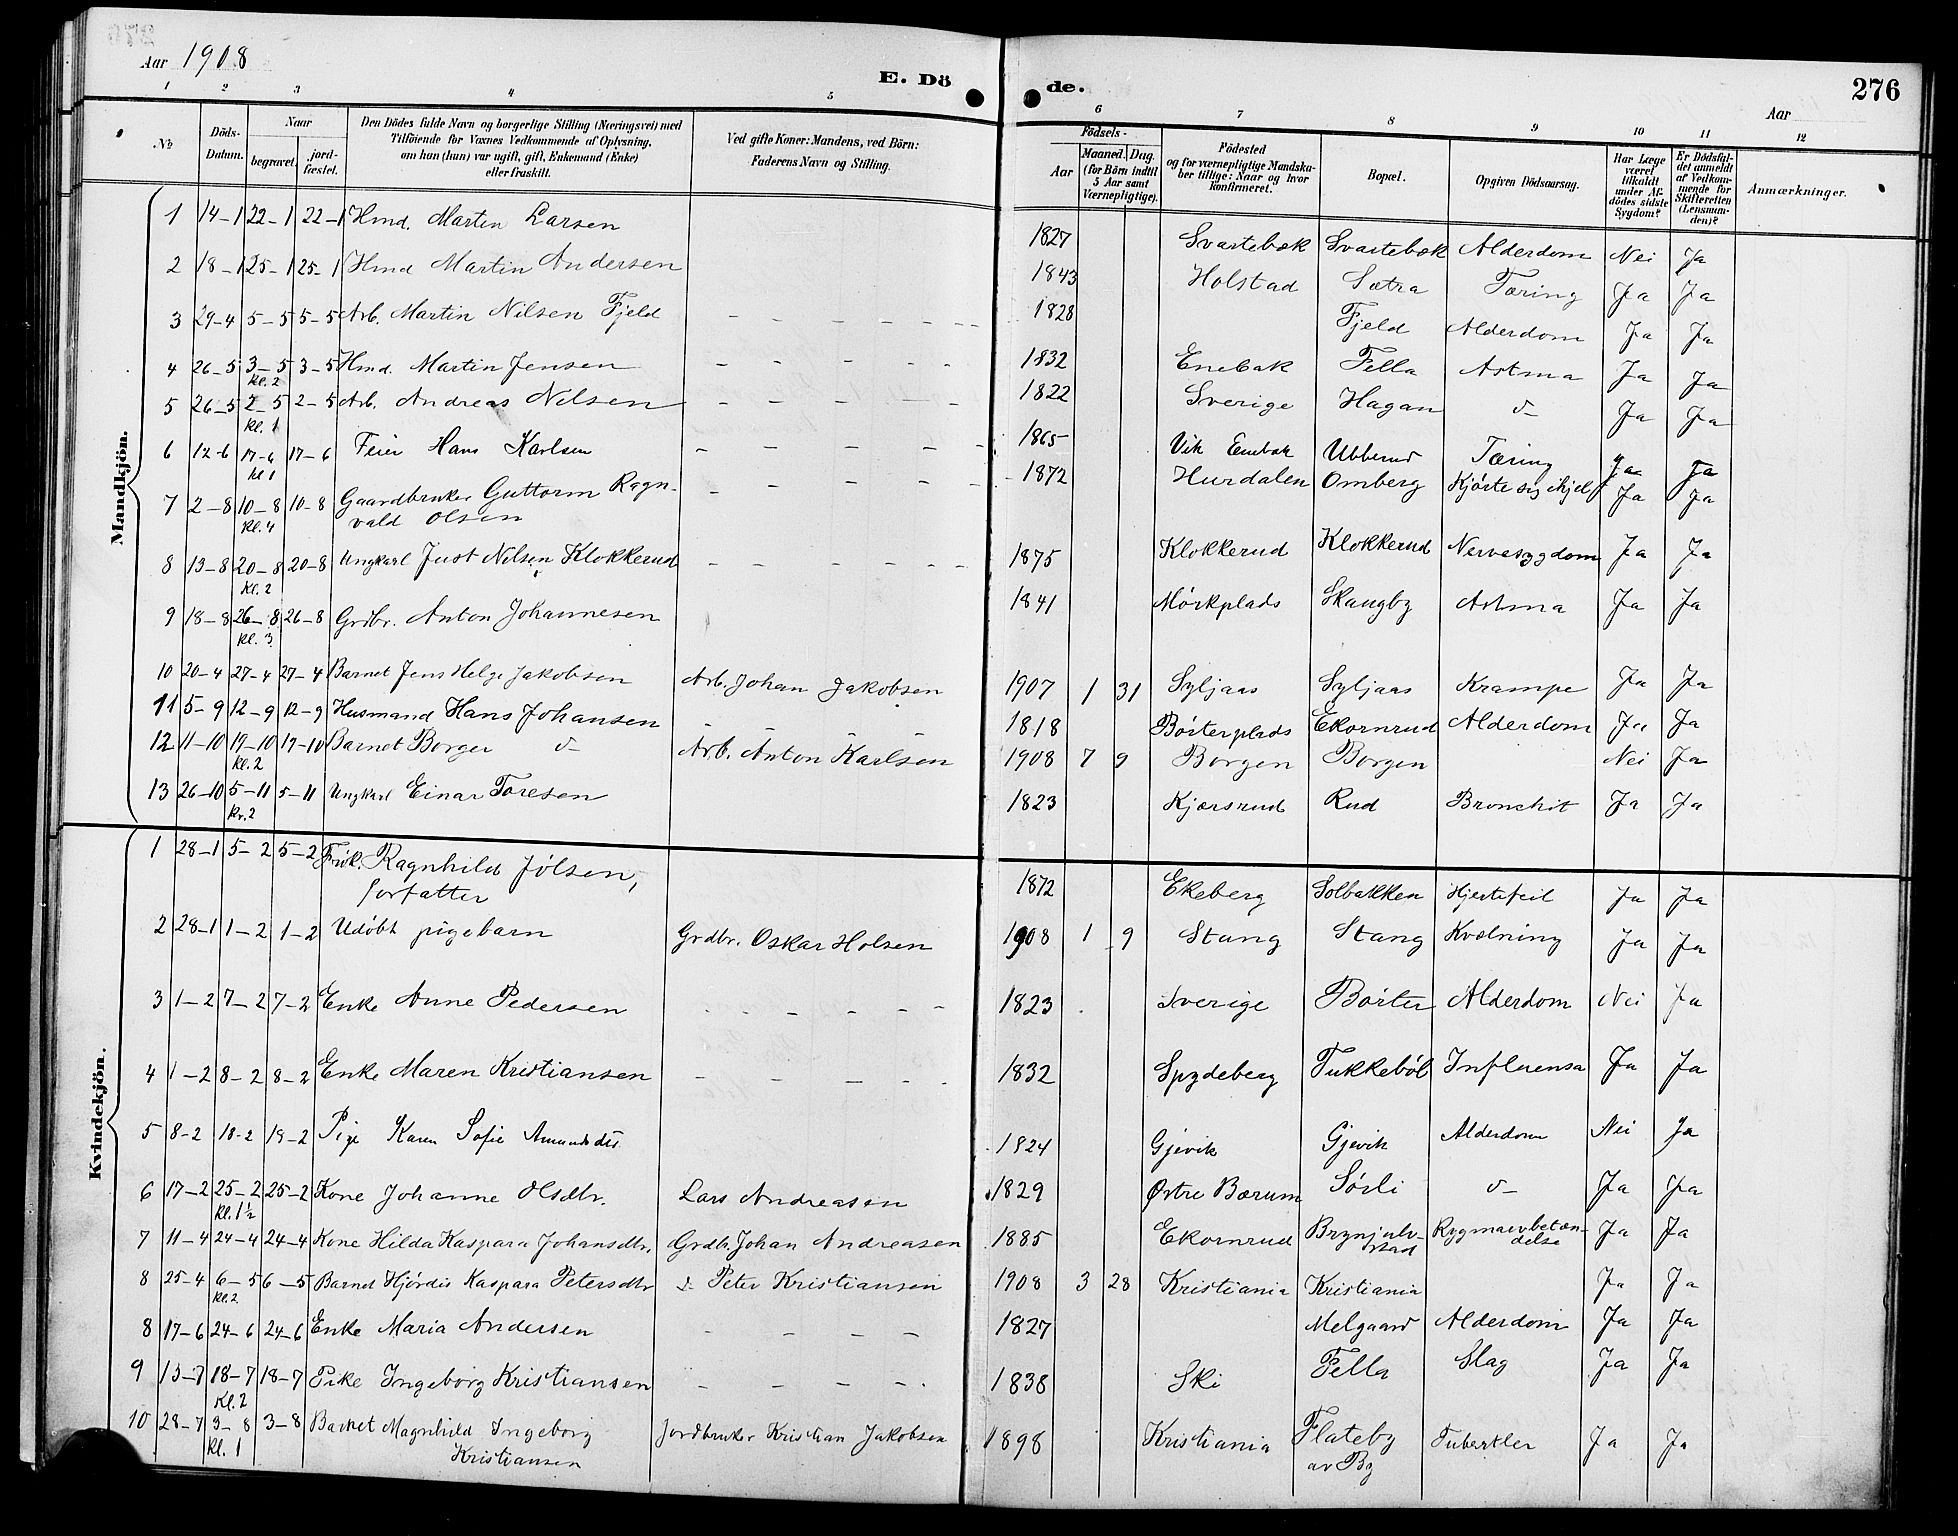 Aar 1908
E. Dö de.
276
Aar
1 2 3 4 5 6 7 8 9 10 11 12
No
Döds-Datum.
Naar
begravet.
jord-fæstet.
Den Dödes fulde Navn og borgerlige Stilling (Næringsvei) med
Tilföiende for Voxnes Vedkommende af Oplysning,
om han (hun) var ugift, gift, Enkemand (Enke)
eller fraskilt.
Ved gifte Koner: Mandens, ved Börn:
Faderens Navn og Stilling.
Födsels-
Aar
Maaned. Dag.
(for Börn indtil
5 Aar samt
Værnepligtige).
Födested
og for værnepligtige Mandska-
ber tillige: Naar og hvor
konfirmeret.
Bopæl.
Opgiven Dödsaarsag.
Har Læge
været
tilkaldt
under Af-
dödes sidste
Sygdom?
Er Dödsfal-
det anmeldt
af Vedkom-
mende for
Skifteretten
(Lensman-
den)?
Anmærkninger.
Mandkjön.
1 14–1 22–1 22–1 Hmd. Martin Larsen 1827 Svartebæk Svartebæk Alderdom Nei Ja
2 18–1 25–1 25–1 Hmd Martin Andersen 1843 Holstad Sætra Tæring Ja Ja
3 29–4 5–5 5–5 Arb. Martin Nilsen Fjeld – – – – – – 1828 Fjeld Alderdom Ja Ja
4 26–5 3–5 3–5 Hmd. Martin Jensen – – – – – 1832 Enebak Fella Astma Ja Ja
kl. 2
5 26–5 2–5 2–5 Arb. Andreas Nilsen – – – – – 1822 Sverige Hagan d– Ja Ja
kl. 1
6 12–6 17–6 17–6 Feier Hans Karlsen – – – – – 1865 Vik Enebak Ubberud Tæring Ja Ja
kl 1
7 2–8 10–8 10–8 Gaardbruker Guttorm Ragn- – – – – – 1872 Hurdalen Omberg Kjørte sig ihjel Ja Ja
kl. 4 vald Olsen
8 13–8 20–8 20–8 Ungkarl Just Nilsen Klokkerud – – – – – – 1875 Klokkerud Klokkerud Nervesygdom Ja Ja
kl. 2
9 18–8 26–8 26–8 Grdbr. Anton Johannesen – 1841 Mørkplads Skaugby Astma Ja Ja
kl. 3
10 20–4 27–4 27–4 Barnet Jens Helge Jakobsen Arb. Johan Jakobsen 1907 1 31 Syljaas Syljaas Krampe Ja Ja
11 5–9 12–9 12–9 Husmand Hans Johansen – – – – 1818 Børterplads Ekornrud Alderdom Ja Ja
12 11–10 19–10 19–10 Barnet Borger d– Arb. Anton Karlsen 1908 7 9 Borgen Borgen Nei Ja
kl. 2
13 26–10 5–11 5–11 Ungkarl Einar Toresen 1823 Kjærsrud Rud Bronchit Ja Ja
Kvindekjön.
1 28–1 5–2 5–2 Frøk. Ragnhild Jølsen, 1872 Ekeberg Solbakken Hjertefeil Ja Ja
forfatter
2 28–1 1–2 1–2 Udøbt pigebarn Grdbr. Oskar Holsen 1908 1 9 Stang Stang Kvælning Ja Ja
3 1–2 7–2 7–2 Enke Anne Pedersen – – – – – – 1823 Sverige Børter Alderdom Nei Ja
4 1–2 8–2 8–2 Enke Maren Kristiansen – – – – – 1832 Spydeberg Tukkebøl Influensa Ja Ja
5 8–2 18–2 19–2 Pige Karen Sofie Amundsdtr. 1824 Gjevik Gjevik Alderdom Nei Ja
6 17–2 25–2 25–2 Kone Johanne Olsdtr. Lars Andreasen 1829 Østre Bærum Sørli d– Ja Ja
kl. 1½
7 11–4 24–4 24–4 Kone Hilda Kaspara Johansdtr. Grdbr. Johan Andreasen 1885 Ekornrud Brynjulv- Rygmarvbetæn- Ja Ja
rstad delse
8 25–4 6–5 6–5 Barnet Hjørdis Kaspara Petersdtr d. Peter Kristiansen 1908 3 28 Kristiania Kristiania Ja Ja
kl. 2
8 17–6 24–6 24–6 Enke Maria Andersen – – – – 1827 Melgaard Alderdom Ja Ja
9 13–7 18–7 18–7 Pike Ingeborg Kristiansen – – – – . 1838 Ski Fella Slag Ja Ja
kl. 2
10 28–7 3–8 3–8 Barnet Magnhild Ingeborg Jordbruker Kristian Jakobsen 1898 Kristiania Flateby Tuberkler Ja Ja
kl. 1 Kristiansen av By